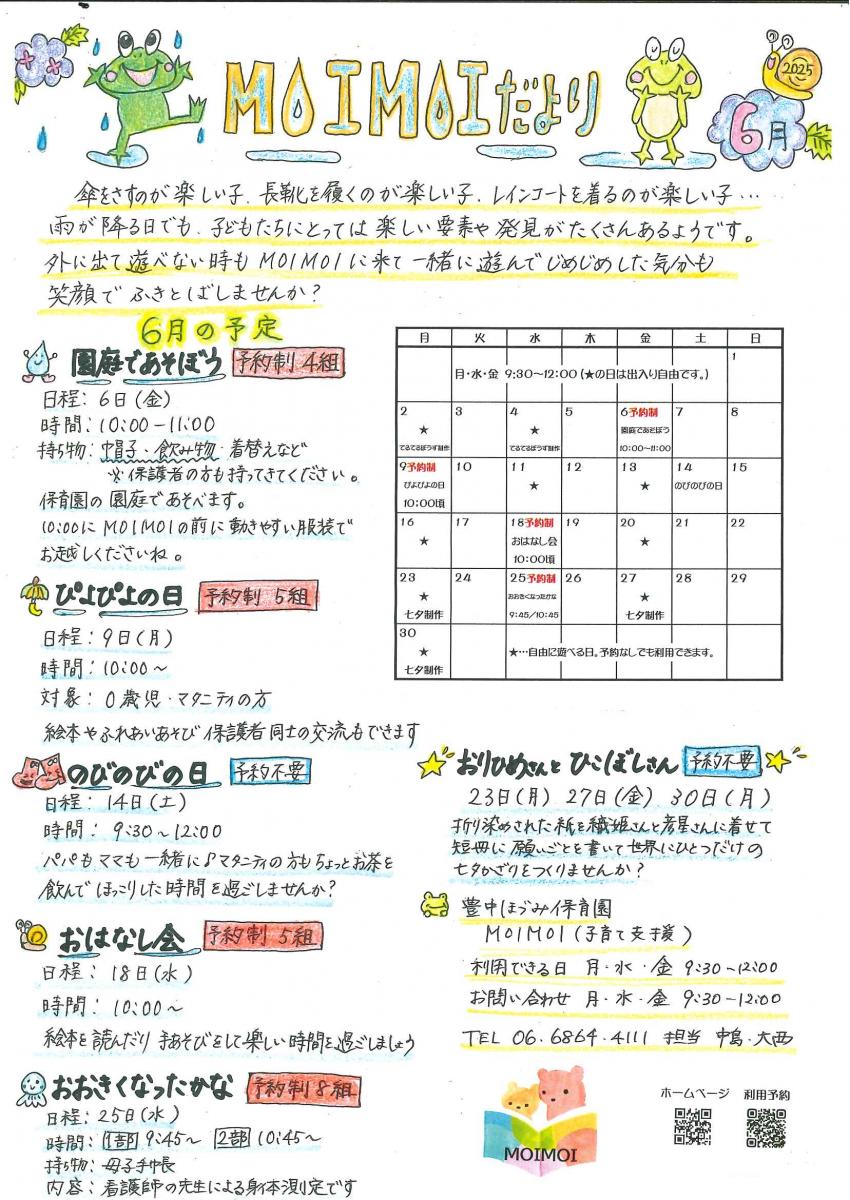 MOIMOIだより
2025
6月
傘をさすのが楽しい子、長靴を履くのが楽しい子、レインコートを着るのが楽しい子…
雨が降る日でも、子どもたちにとっては楽しい要素や発見がたくさんあるようです。
外に出て遊べない時もMOIMOIに来て一緒に遊んでじめじめした気分も
笑顔でふきとばしませんか?
6月の予定
園庭であそぼう 予約制 4組
日程：6日(金)
時間：10:00-11:00
持ち物：帽子・飲み物・着替えなど
※保護者の方も持ってきてください。
保育園の園庭であそべます。
10:00にMOIMOIの前に動きやすい服装で
お越しくださいね。
ぴよぴよの日 予約制 5組
日程：9日(月)
時間：10:00～
対象：0歳児・マタニティの方
絵本やふれあいあそび 保護者同士の交流もできます
月 火 水 木 金 土 日
1
月・水・金 9:30～12:00 (★の日は出入り自由です。)
2 3 4 5 6予約制 7 8
★ ★ 園庭であそぼう
てるてるぼうず制作 てるてるぼうず制作 10:00～11:00
9予約制 10 11 12 13 14 15
ぴよぴよの日 ★ ★ のびのびの日
10:00頃
16 17 18予約制 19 20 21 22
★ おはなし会 ★
10:00頃
23 24 25予約制 26 27 28 29
★ おおきくなったかな ★
七夕制作 9:45/10:45 七夕制作
30
★ ★…自由に遊べる日。予約なしでも利用できます。
七夕制作
のびのびの日 予約不要
日程：14日(土)
時間：9:30～12:00
パパもママも一緒に♪マタニティの方もちょっとお茶を
飲んでほっこりした時間を過ごしませんか?
おはなし会 予約制 5組
日程：18日(水)
時間：10:00～
絵本を読んだり手あそびをして楽しい時間を過ごしましょう
おおきくなったかな 予約制8組
日程：25日(水)
時間：1部 9:45～ 2部 10:45～
持ち物：母子手帳
内容：看護師の先生による身体測定です
おりひめさんとひこぼしさん 予約不要
23日(月) 27日(金) 30日(月)
折り染めされた紙を織姫さんと彦星さんに着せて
短冊に願いごとを書いて世界にひとつだけの
七夕かざりをつくりませんか?
豊中ほづみ保育園
MOIMOI(子育て支援)
利用できる日 月・水・金 9:30-12:00
お問い合わせ 月・水・金 9:30-12:00
TEL 06.6864.4111 担当 中島・大西
ホームページ 利用予約
MOIMOI